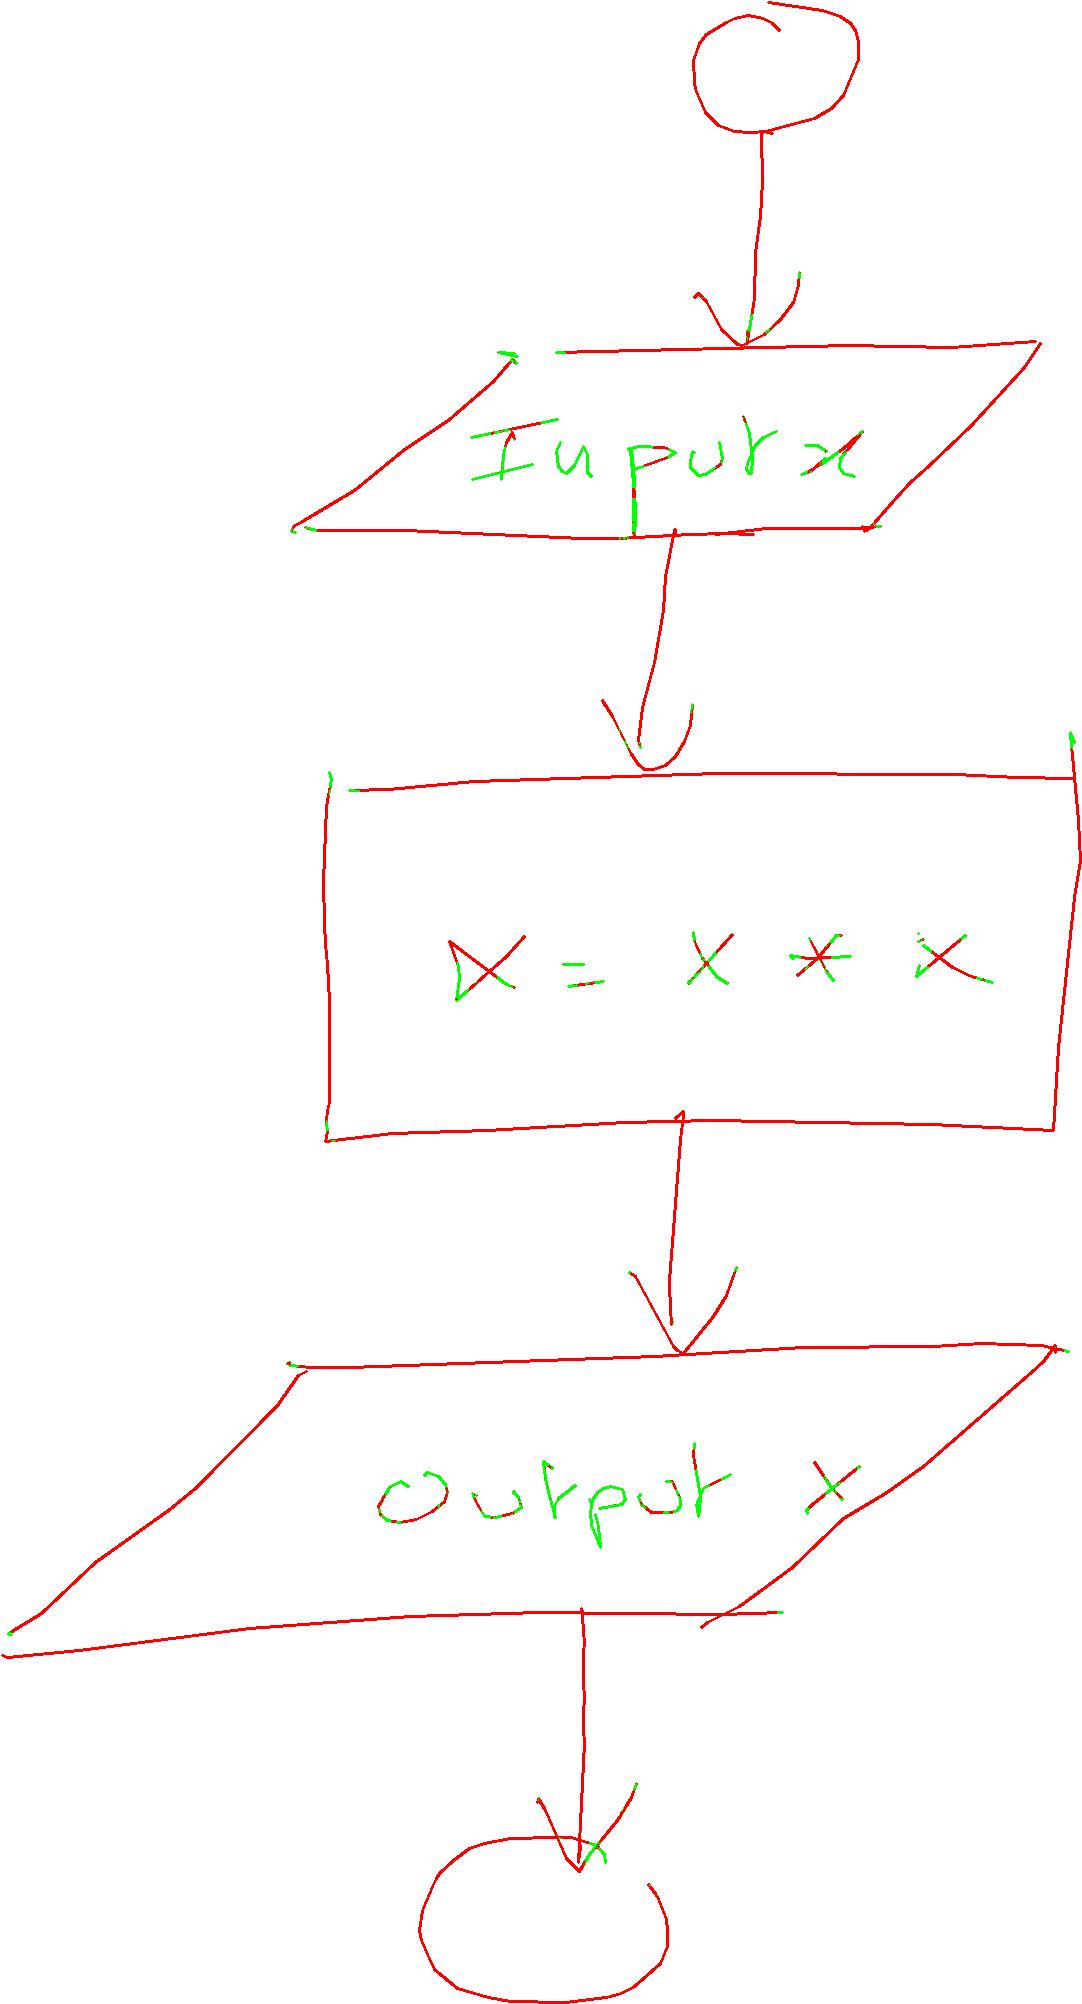 Input x
x = x * x
output x